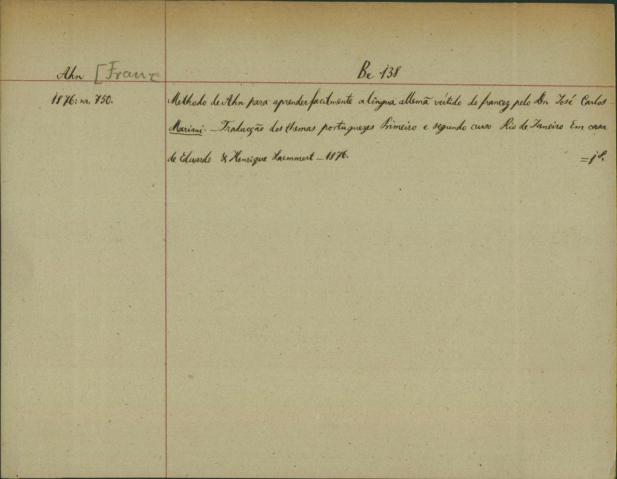 Ahn [Franz
Be 138
1876: nr. 750.
Methodo de Ahn para aprender facilmente a lingua allemã vertido do francez pelo Dn José Carlos
Mariani. – Traducção dos themas portuguezes Primeiro e segundo curso Rio de Janeiro Em casa
de Eduardo & Henrique Laemmert – 1876. = 1 8°.